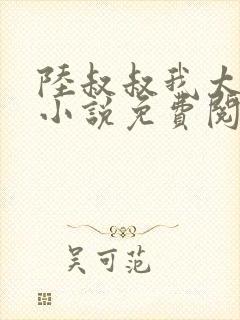 陸叔叔我大
小說免費閱
吳可范